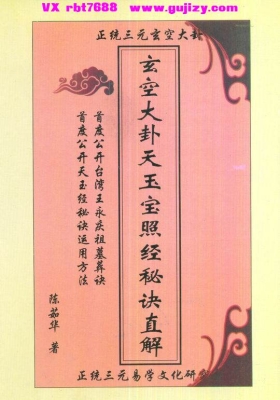 VX rbt7688 www.gujizy.com
正统三元玄空大卦
玄空大卦天玉宝照经秘诀直解
首度公开台湾王永庆祖墓葬诀
首度公开天玉经秘诀运用方法
陈茹华 著
正统三元易学文化研